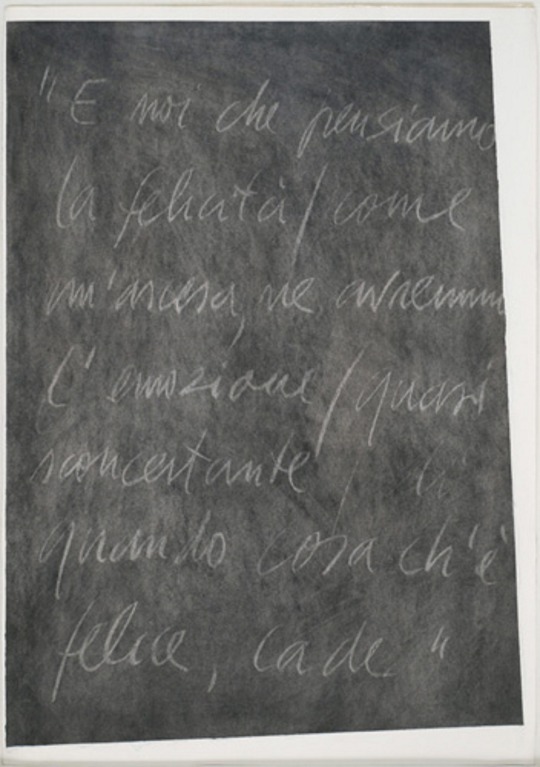 "E noi che pensiamo
la felicità / come
un'ascesa, ne avremmo
l'emozione / quasi
sconcertante / di
quando cosa ch'è
felice, cade"